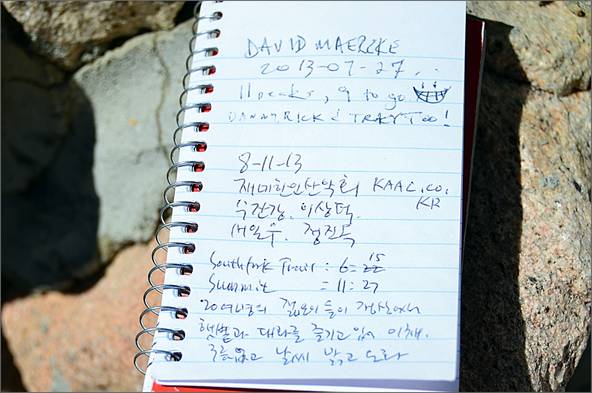 DAVID MAERCKE
2013-07-27
11 peaks, 9 to go
DANNY, RICK & TRAY TOO!
8-11-13
재미한인산악회 KAAC.CO.
KR
이상덕
정진옥
South fork Trail : 6= 22 15
Summit = 11:27
20여명의 젊은이들이 정상에서
햇볕과 대화를 즐기고 있어 이채.
구름없고 날씨 맑고